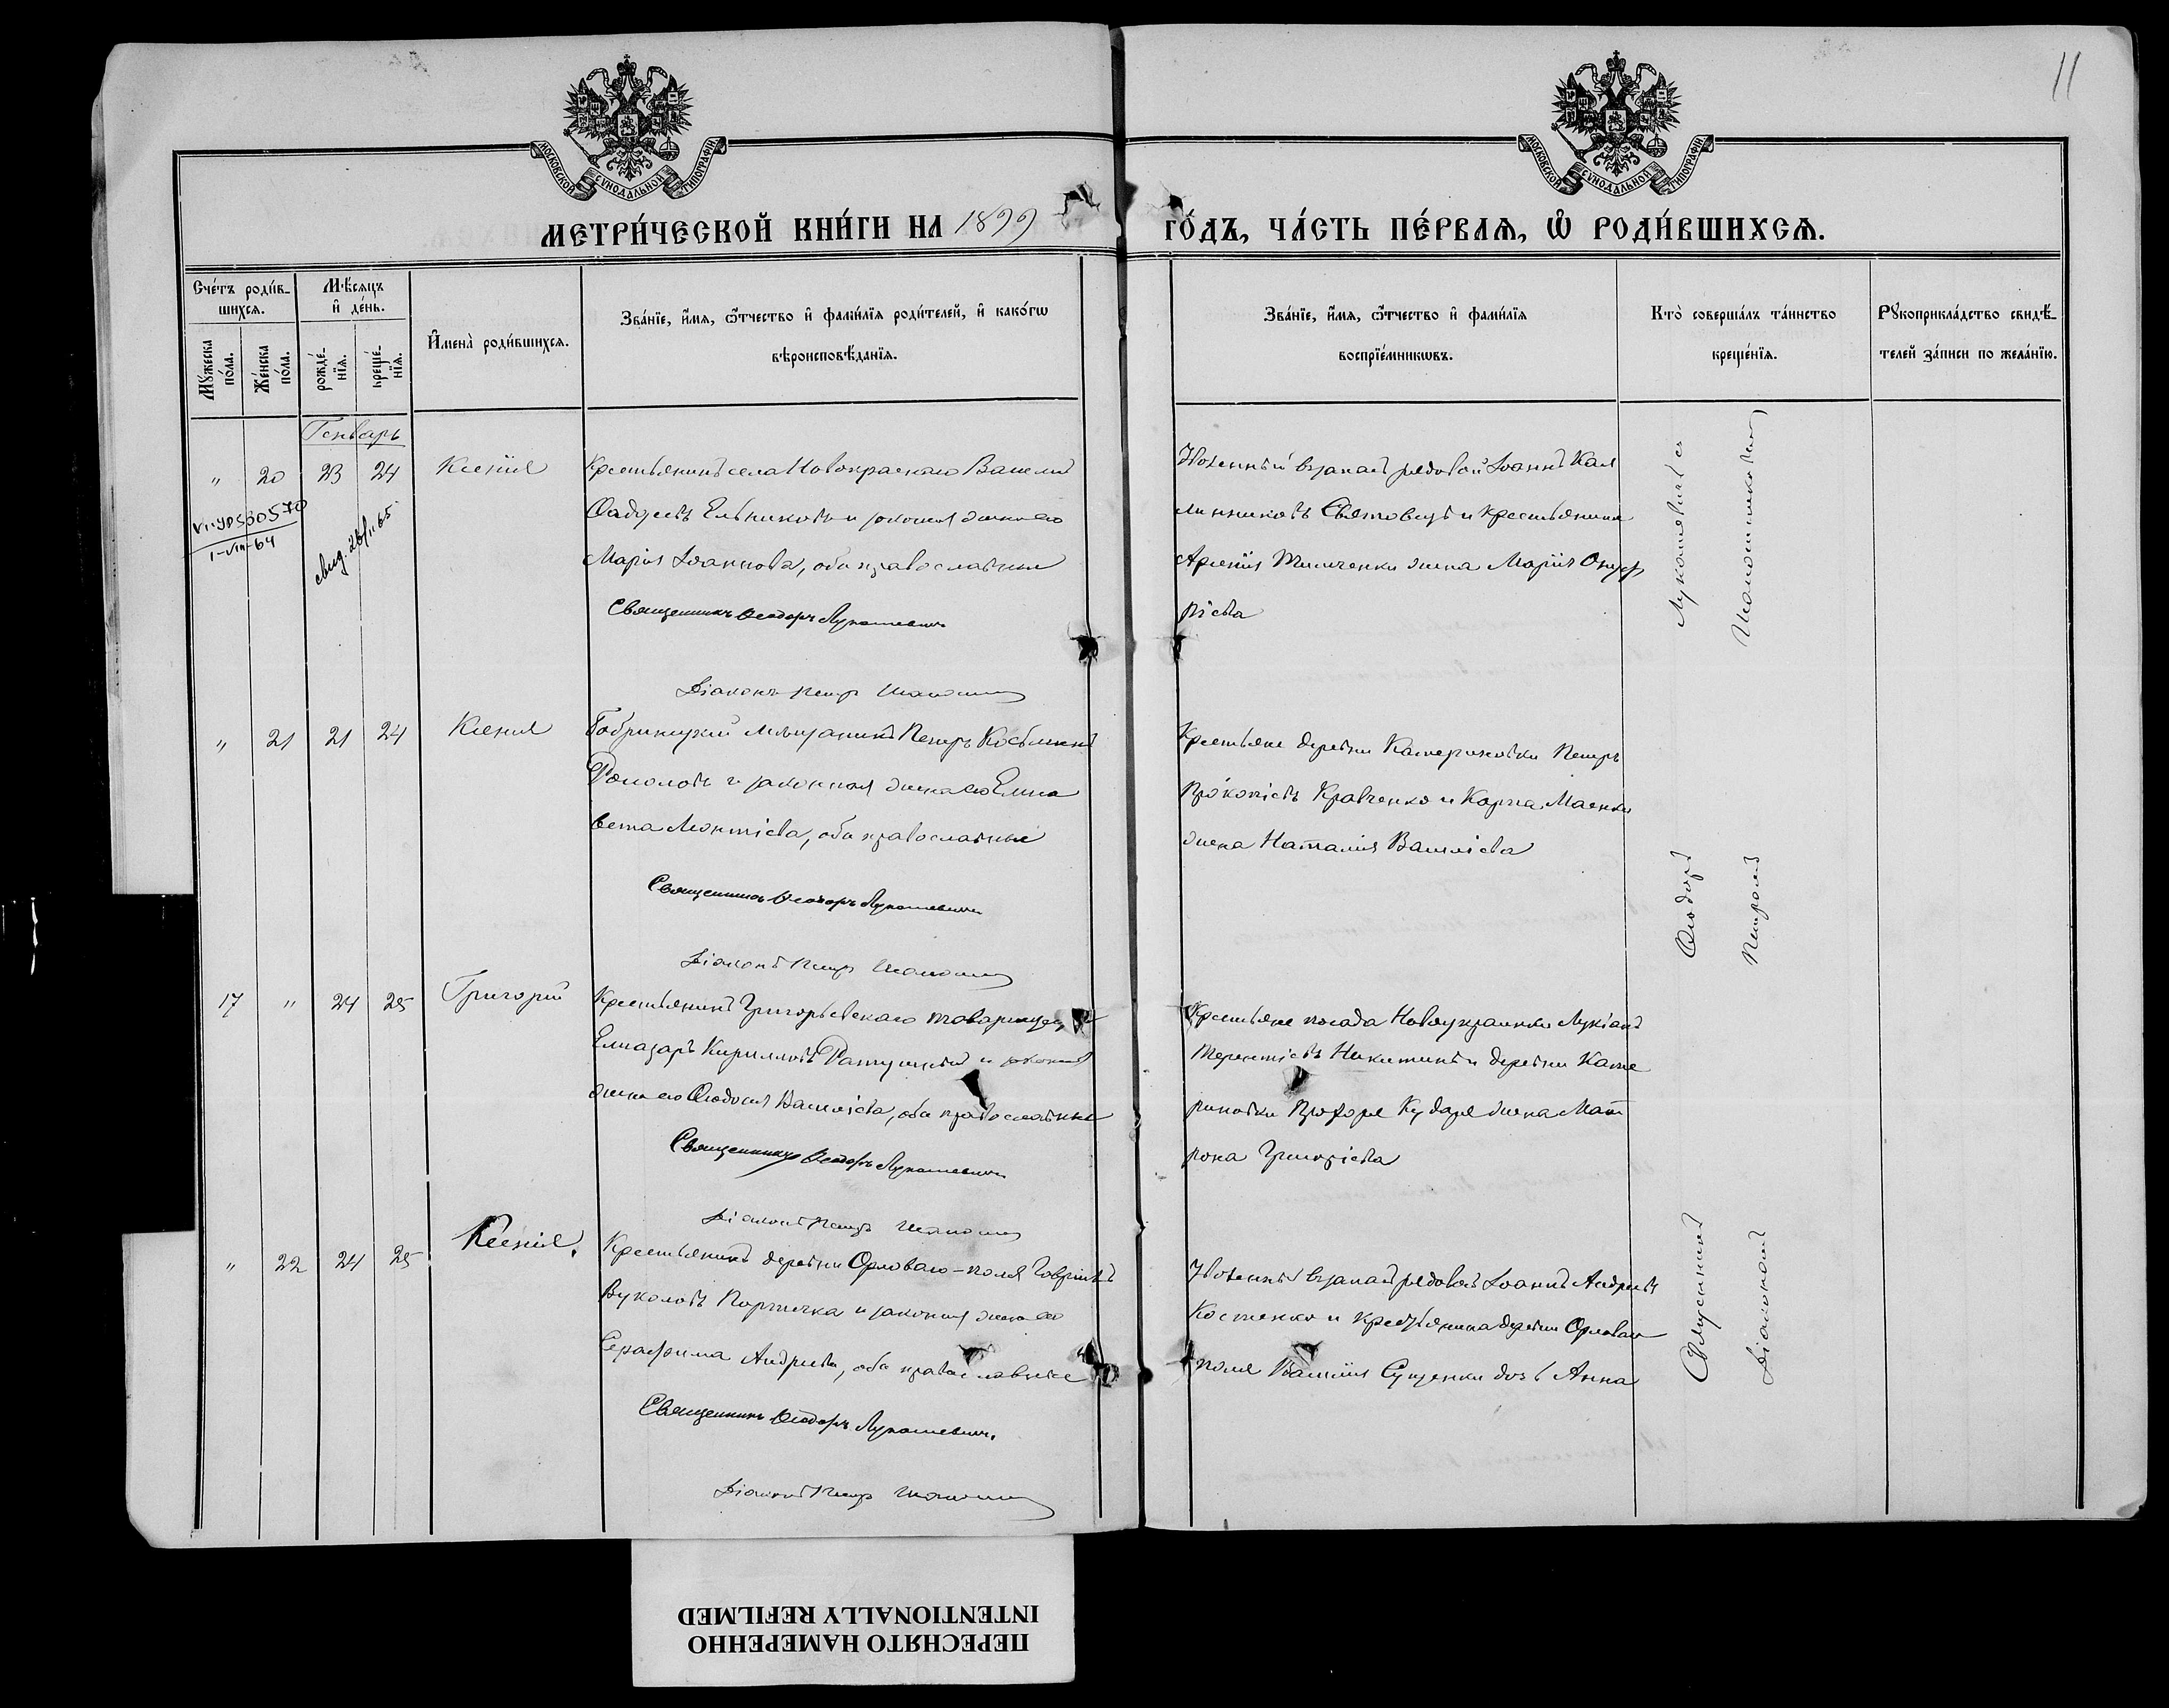 11
МОСКОВСКОЙ СѴНОДАЛЬНОЙ ТИПОГРАФІИ
МОСКОВСКОЙ СѴНОДАЛЬНОЙ ТИПОГРАФІИ
МЕТРИ́ЧЕСКОЙ КНИ́ГИ НА 1899 ГО́ДЪ, ЧА́СТЬ ПЕ́РВАЯ, Ѡ РОДИ́ВШИХСЯ.
Сче́тъ роди́в-
шихся.
Мѣ́сяцъ
и҆ де́нь.
Мꙋ́жеска по́ла.
Же́нска по́ла.
рожде́-
нїя.
креще́-
нїя.
И҆мена̀ роди́вшихся.
Зва́нїе, и҆́мя, ѻ҆́тчество и҆ фами́лїя роди́телей, и҆ како́гѡ
вѣроисповѣ́данїя.
Зва́нїе, и҆́мя, ѻ҆́тчество и҆ фами́лїя
воспрїе́мникѡвъ.
Кто̀ соверша́лъ та́инство
креще́нїя.
Рꙋкоприкла́дство свидѣ́-
телей за́писи по жела́нїю.
Генварь
" 20 23 24 Ксенія
1-VIII-64
свид. 26/II 65
Крестьянинъ села Новокраснаго Василій
Фадѣевъ Ельниковъ и законная жена его
Марія Іоаннова, оба православные
Священникъ Ѳеодоръ Лукашевичъ
Діаконъ Петръ
Уволенный въ запасъ рядовой Іоаннъ Кал
линниковъ и крестьянина
Арсенія жена Марія Онуф
ріева
" 21 21 24 Ксенія
Бобринецкій мѣщанинъ Петръ Косьминъ
и законная жена его Елиса
вета Леонтіева, оба православные
Священникъ Ѳеодоръ Лукашевичъ
Діаконъ Петръ
Крестьяне деревни Катериновки Петръ
Прокопіевъ Кравченко и Карпа Маенка
жена Наталія Васильева
17 " 24 25 Григорій
Крестьянинъ Григорьевскаго товарищества
Елиазаръ Кирилловъ и законная
жена его Ѳеодосія Васильева, оба православные
Священникъ Ѳеодоръ Лукашевичъ
Діаконъ Петръ
Крестьяне посада Новоукраинки Лукіанъ
Терентіевъ Никитинъ и деревни Кате
риновки Прохора Кударя жена Мат
рона Григоріева
" 22 24 25 Ксенія.
Крестьянинъ деревни Орловаго-поля Гавріилъ
Вуколовъ и законная жена его
Серафима Андреева, оба православные
Священникъ Ѳеодоръ Лукашевичъ.
Діаконъ Петръ
Уволенный въ запасъ рядовой Іоаннъ Андреевъ
Костенко и крестьянина деревни Орлова
поля Василія Сущенки дочь Анна
Священникъ Ѳеодоръ Лукашевичъ съ
Діакономъ Петромъ
ПЕРЕСНЯТО НАМЕРЕННО
INTENTIONALLY REFILMED